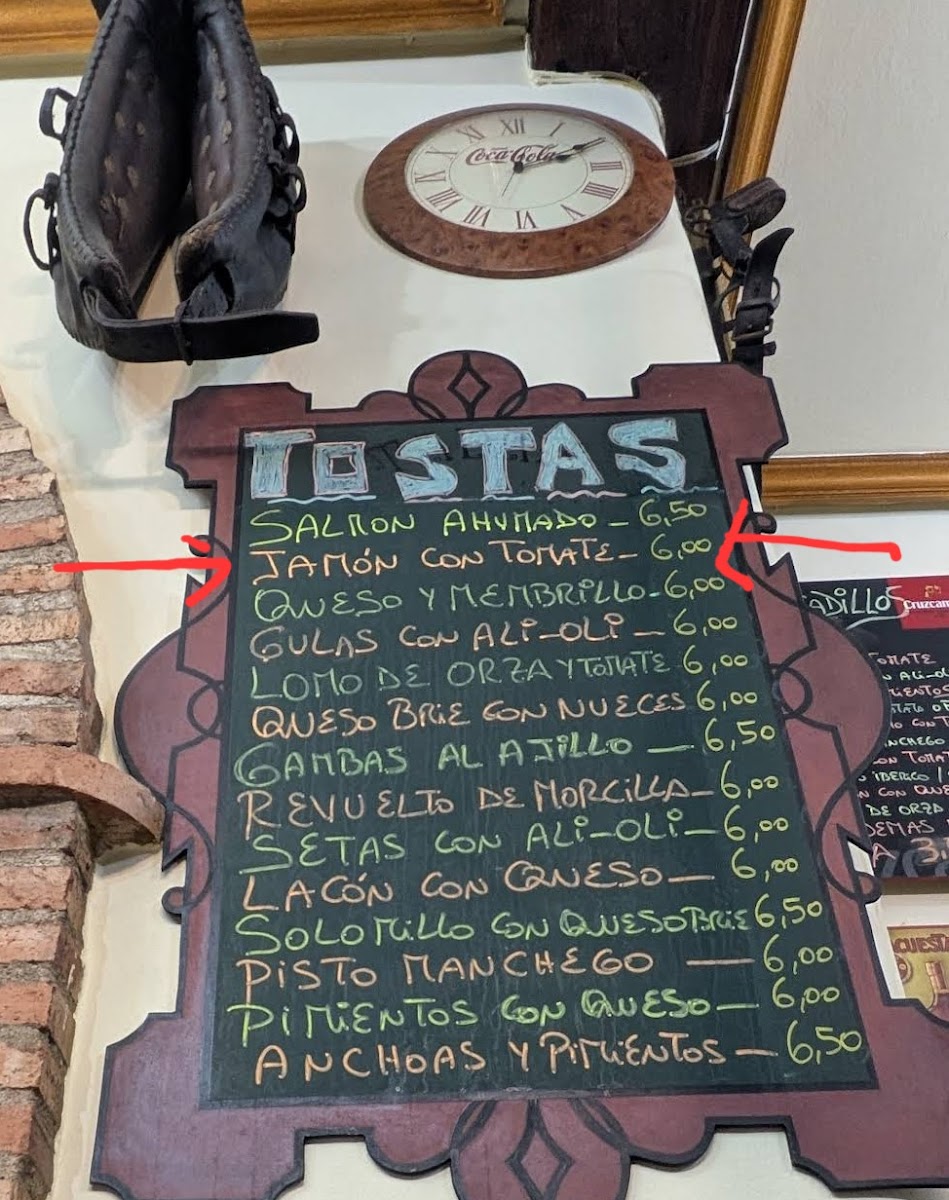 XII
Coca-Cola
TOSTAS
SALMON AHUMADO - 6,50
JAMÓN CON TOMATE - 6,00
QUESO Y MEMBRILLO - 6,00
GULAS CON ALI-OLI - 6,00
LOMO DE ORZA Y TOMATE 6,00
QUESO BRIE CON NUECES 6,00
GAMBAS AL AJILLO - 6,50
REVUELTO DE MORCILLA - 6,00
SETAS CON ALI-OLI - 6,00
LACÓN CON QUESO - 6,00
SOLOMILLO CON QUESO BRIE 6,50
PISTO MANCHEGO - 6,00
PIMIENTOS CON QUESO - 6,00
ANCHOAS Y PIMIENTOS - 6,50
ADILLOS
Cruzcam
TOMATE
ALI-OL
NCHEGO
CON TOMA
IBERICO
CON QUE
DE ORZA
DEMAS
A 3,
CUESTA